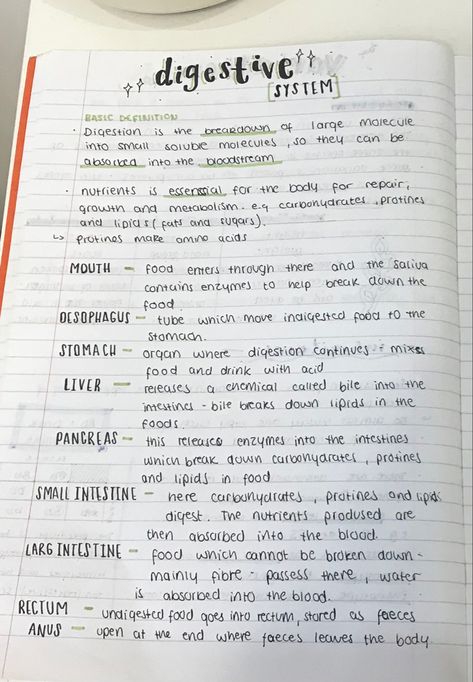 digestive
[SYSTEM]
BASIC DEFINITION
· Digestion is the breakdown of large molecule
into small soluble molecules, so they can be
absorbed into the bloodstream
· nutrients is essensial for the body for repair,
growth and metabolism. e.g carbohydrates, protines
and lipids (fats and sugars).
↳ protines make amino acids
MOUTH - food enters through there and the saliva
contains enzymes to help break down the
food.
OESOPHAGUS - tube which move indigested food to the
stomach.
STOMACH - organ where digestion continues - mixes
food and drink with acid
LIVER - releases a chemical called bile into the
intestines - bile breaks down lipids in the
foods.
PANCREAS - this releases enzymes into the intestines
which break down carbohydrates, protines
and lipids in food
SMALL INTESTINE - here carbohydrates, protines and lipids
digest. The nutrients prodused are
then absorbed into the blood.
LARG INTESTINE - food which cannot be broken down -
mainly fibre - passess there, water
is absorbed into the blood.
RECTUM - undigested food goes into rectum, stored as faeces
ANUS - open at the end where faeces leaves the body